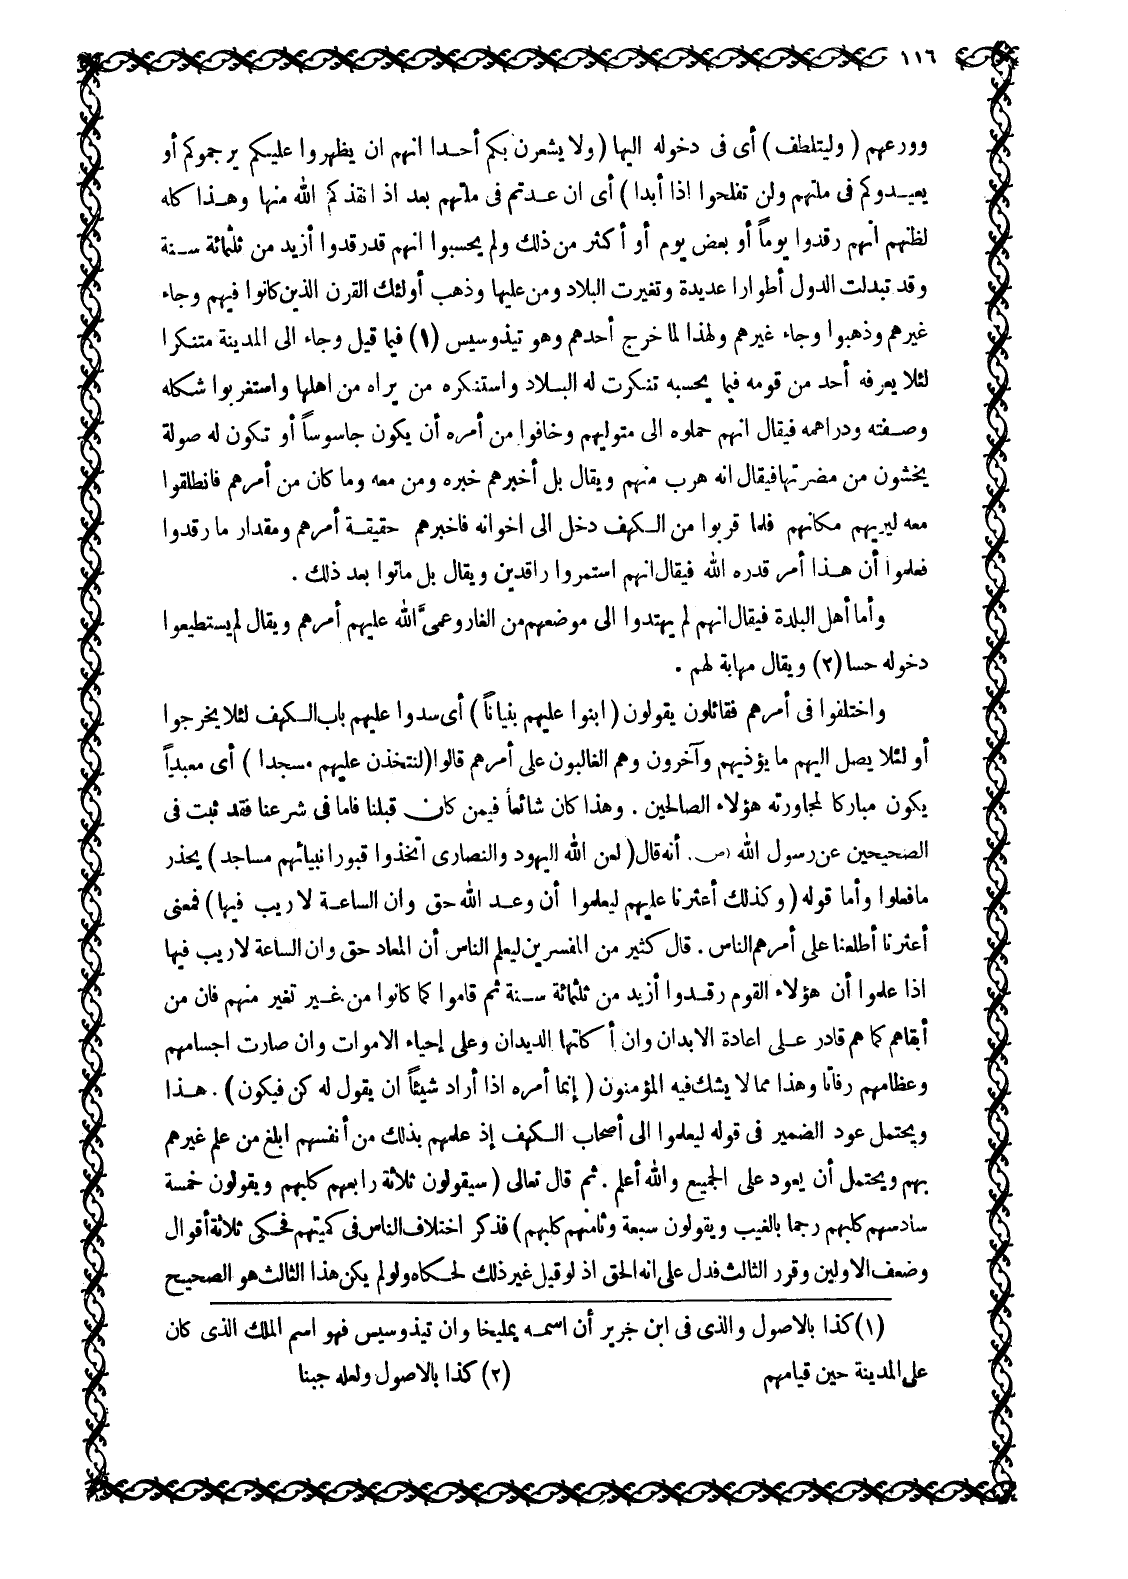 ١١٦
وورعهم ( وليتلطف ) أى فى دخوله اليها ( ولا يشعرن بكم أحدا انهم ان يظهروا عليكم يرجموكم أو
يعيدوكم فى ملتهم ولن تفلحوا اذا أبدا ) أى ان عدتم فى ملتهم بعد اذ انقذكم الله منها وهذا كله
لظنهم انهم رقدوا يوماً أو بعض يوم أو أكثر من ذلك ولم يحسبوا انهم قد رقدوا أزيد من ثلثمائة سنة
وقد تبدلت الدول أطوارا عديدة وتغيرت البلاد ومن عليها وذهب أولئك القرن الذين كانوا فيهم وجاء
غيرهم وذهبوا وجاء غيرهم ولهذا لما خرج أحدهم وهو تيذوسيس (١) فيما قيل وجاء الى المدينة متنكرا
لئلا يعرفه أحد من قومه فيما يحسبه تنكرت له البلاد واستنكره من يراه من اهلها واستغربوا شكله
وصفته ودراهمه فيقال انهم حملوه الى متوليهم وخافوا من أمره أن يكون جاسوساً أو تكون له صولة
يخشون من مضرتها فيقال انه هرب منهم ويقال بل أخبرهم خبره ومن معه وما كان من أمرهم فانطلقوا
معه ليريهم مكانهم فلما قربوا من الكهف دخل الى اخوانه فاخبرهم حقيقة أمرهم ومقدار ما رقدوا
فعلموا أن هذا أمر قدره الله فيقال انهم استمروا راقدين ويقال بل ماتوا بعد ذلك .
وأما أهل البلدة فيقال انهم لم يهتدوا الى موضعهم من الغار وعمى الله عليهم أمرهم ويقال لم يستطيعوا
دخوله حسا (٢) ويقال مهابة لهم .
واختلفوا فى أمرهم فقائلون يقولون ( ابنوا عليهم بنياناً ) أى سدوا عليهم باب الكهف لئلا يخرجوا
أو لئلا يصل اليهم ما يؤذيهم وآخرون وهم الغالبون على أمرهم قالوا (لنتخذن عليهم مسجدا ) أى معبداً
يكون مباركا لمجاورته هؤلاء الصالحين . وهذا كان شائعاً فيمن كان قبلنا فاما فى شرعنا فقد ثبت فى
الصحيحين عن رسول الله (ص). أنه قال ( لعن الله اليهود والنصارى اتخذوا قبور انبيائهم مساجد ) يحذر
ما فعلوا وأما قوله ( وكذلك أعثرنا عليهم ليعلموا أن وعد الله حق وان الساعة لا ريب فيها ) فمعنى
أعثرنا أطلعنا على أمرهم الناس . قال كثير من المفسرين ليعلم الناس أن المعاد حق وان الساعة لا ريب فيها
اذا علموا أن هؤلاء القوم رقدوا أزيد من ثلثمائة سنة ثم قاموا كما كانوا من غير تغير منهم فان من
أبقاهم كما هم قادر على اعادة الابدان وان أكلتها الديدان وعلى إحياء الاموات وان صارت اجسامهم
وعظامهم رفاتا وهذا مما لا يشك فيه المؤمنون ( إنما أمره اذا أراد شيئاً ان يقول له كن فيكون ) . هذا
ويحتمل عود الضمير فى قوله ليعلموا الى أصحاب الكهف إذ علمهم بذلك من أنفسهم ابلغ من علم غيرهم
بهم ويحتمل أن يعود على الجميع والله أعلم . ثم قال تعالى ( سيقولون ثلاثة رابعهم كلبهم ويقولون خمسة
سادسهم كلبهم رجما بالغيب ويقولون سبعة وثامنهم كلبهم ) فذكر اختلاف الناس فى كميتهم فحكى ثلاثة أقوال
وضعف الاولين وقرر الثالث فدل على انه الحق اذ لو قيل غير ذلك لحكاه ولو لم يكن هذا الثالث هو الصحيح
(١) كذا بالاصول والذى فى ابن جرير أن اسمه يمليخا وان تيذوسيس فهو اسم الملك الذى كان
على المدينة حين قيامهم (٢) كذا بالاصول ولعله جبنا